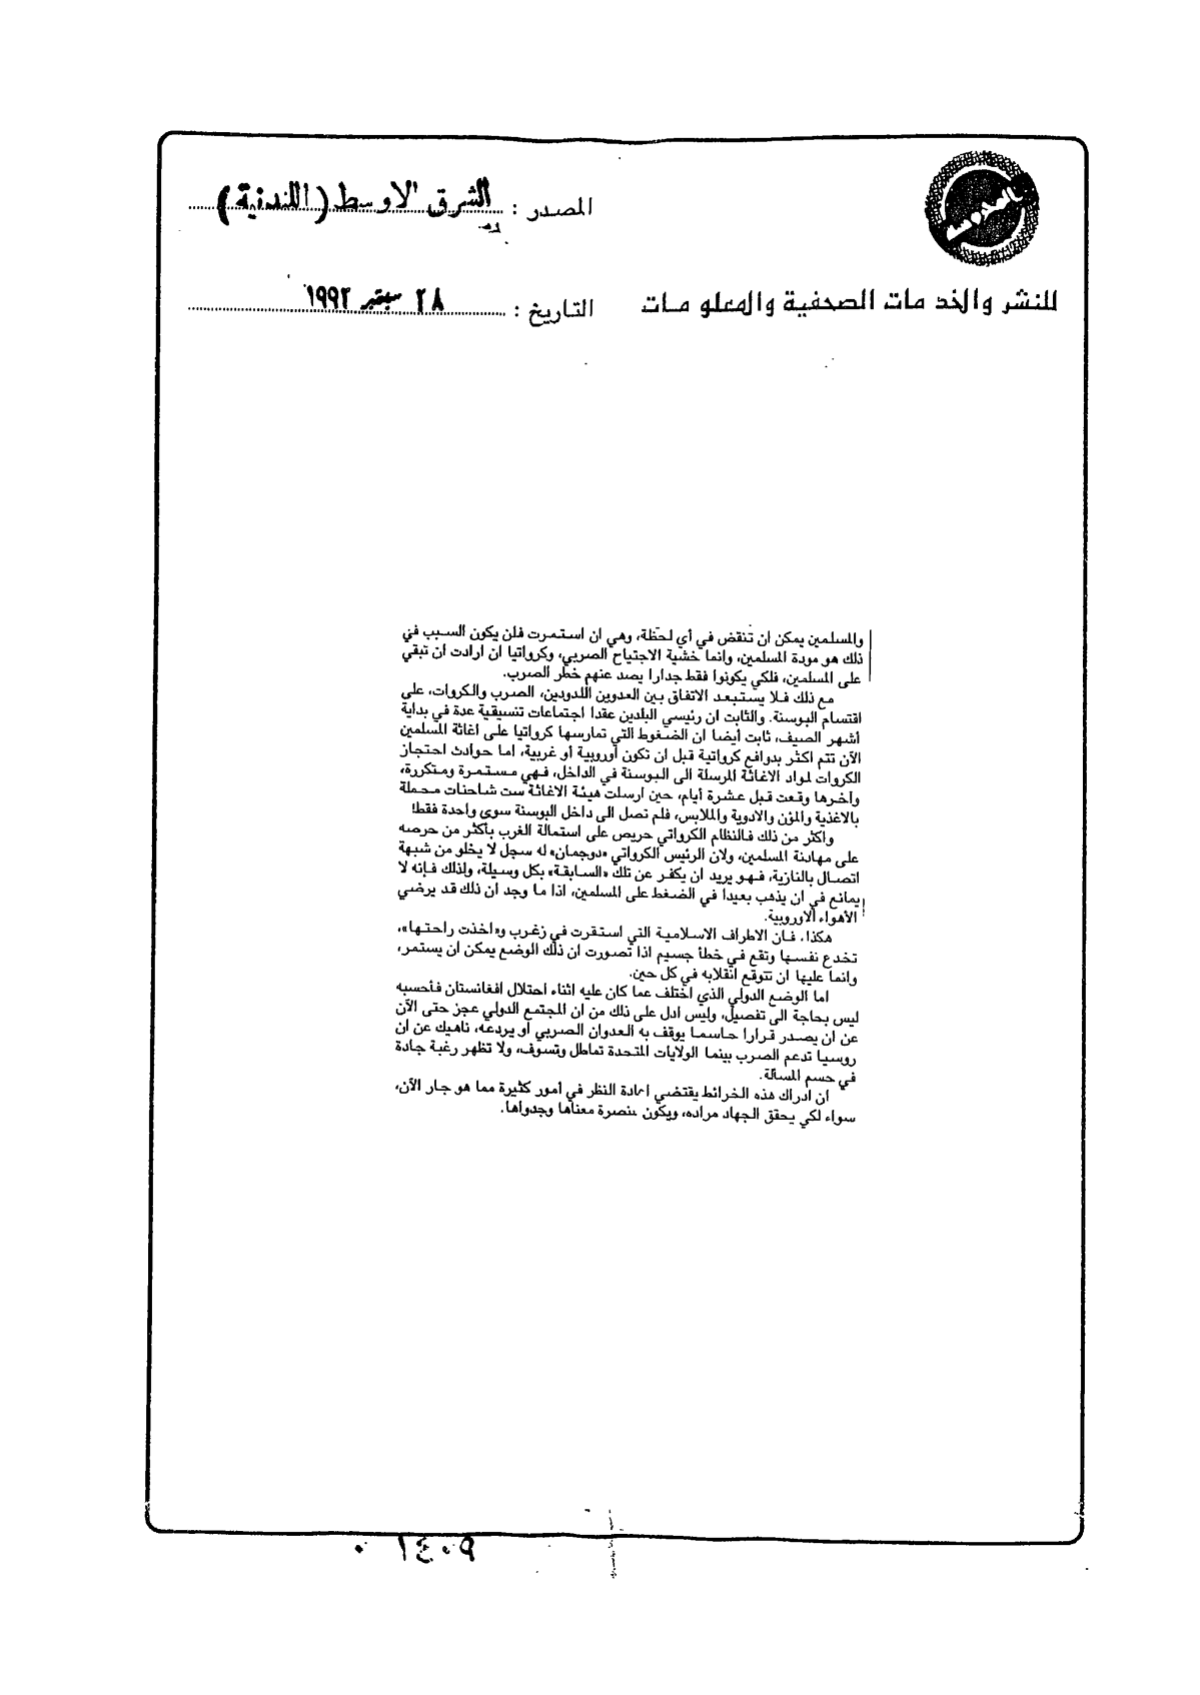 المصدر : الشرق الاوسط (اللندنية)
للنشر والخدمات الصحفية والمعلومات
التاريخ : ٢٨ سبتمبر ١٩٩٢
والمسلمين يمكن ان تنقض في أي لحظة، وهي ان استمرت فلن يكون السبب في
ذلك هو مودة المسلمين، وانما خشية الاجتياح الصربي، وكرواتيا ان ارادت ان تبقي
على المسلمين، فلكي يكونوا فقط جدارا يصد عنهم خطر الصرب.
مع ذلك فلا يستبعد الاتفاق بين العدوين اللدودين، الصرب والكروات، على
اقتسام البوسنة. والثابت ان رئيسي البلدين عقدا اجتماعات تنسيقية عدة في بداية
أشهر الصيف، ثابت أيضا ان الضغوط التي تمارسها كرواتيا على اغاثة المسلمين
الآن تتم اكثر بدوافع كرواتية قبل ان تكون أوروبية أو غربية، اما حوادث احتجاز
الكروات لمواد الاغاثة المرسلة الى البوسنة في الداخل، فهي مستمرة ومتكررة،
وآخرها وقعت قبل عشرة أيام، حين ارسلت هيئة الاغاثة ست شاحنات محملة
بالاغذية والمؤن والادوية والملابس، فلم تصل الى داخل البوسنة سوى واحدة فقط!
واكثر من ذلك فالنظام الكرواتي حريص على استمالة الغرب بأكثر من حرصه
على مهادنة المسلمين، ولان الرئيس الكرواتي «دوجمان» له سجل لا يخلو من شبهة
اتصال بالنازية، فهو يريد ان يكفر عن تلك «السابقة» بكل وسيلة، ولذلك فإنه لا
يمانع في ان يذهب بعيدا في الضغط على المسلمين، اذا ما وجد ان ذلك قد يرضي
الأهواء الاوروبية.
هكذا، فان الاطراف الاسلامية التي استقرت في زغرب و«اخذت راحتها»،
تخدع نفسها وتقع في خطأ جسيم اذا تصورت ان ذلك الوضع يمكن ان يستمر،
وانما عليها ان تتوقع انقلابه في كل حين.
اما الوضع الدولي الذي اختلف عما كان عليه اثناء احتلال افغانستان فأحسبه
ليس بحاجة الى تفصيل، وليس ادل على ذلك من ان المجتمع الدولي عجز حتى الآن
عن ان يصدر قرارا حاسما يوقف به العدوان الصربي أو يردعه، ناهيك عن ان
روسيا تدعم الصرب بينما الولايات المتحدة تماطل وتسوف، ولا تظهر رغبة جادة
في حسم المسألة.
ان ادراك هذه الخرائط يقتضي اعادة النظر في أمور كثيرة مما هو جار الآن،
سواء لكي يحقق الجهاد مراده، ويكون للنصرة معناها وجدواها.
٠١٤٠٩